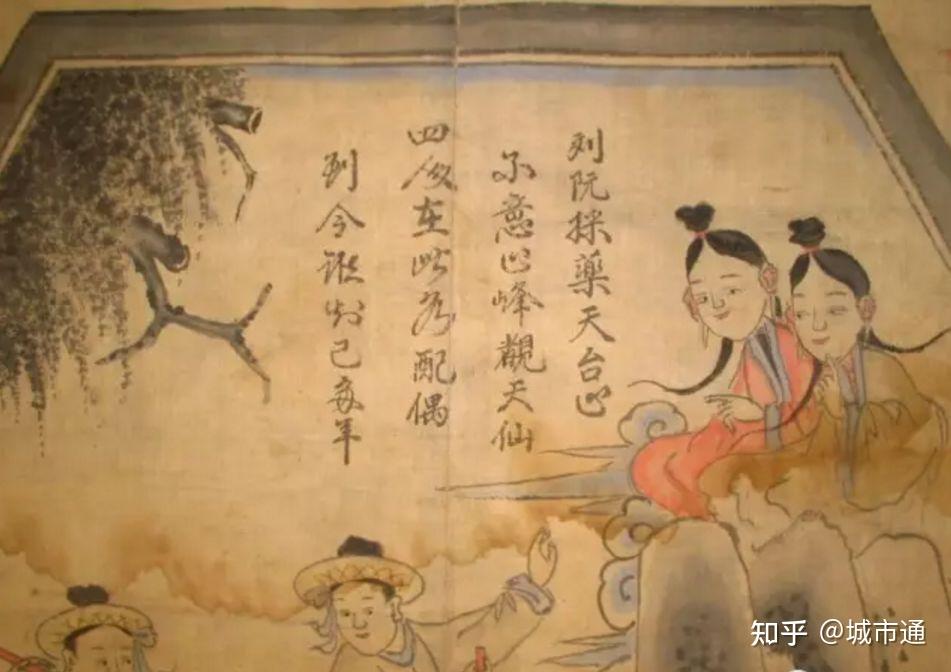 刘阮採藥天台山
不意山峰觀天仙
四人在此为配偶
到今
己多年
知乎 @城市通